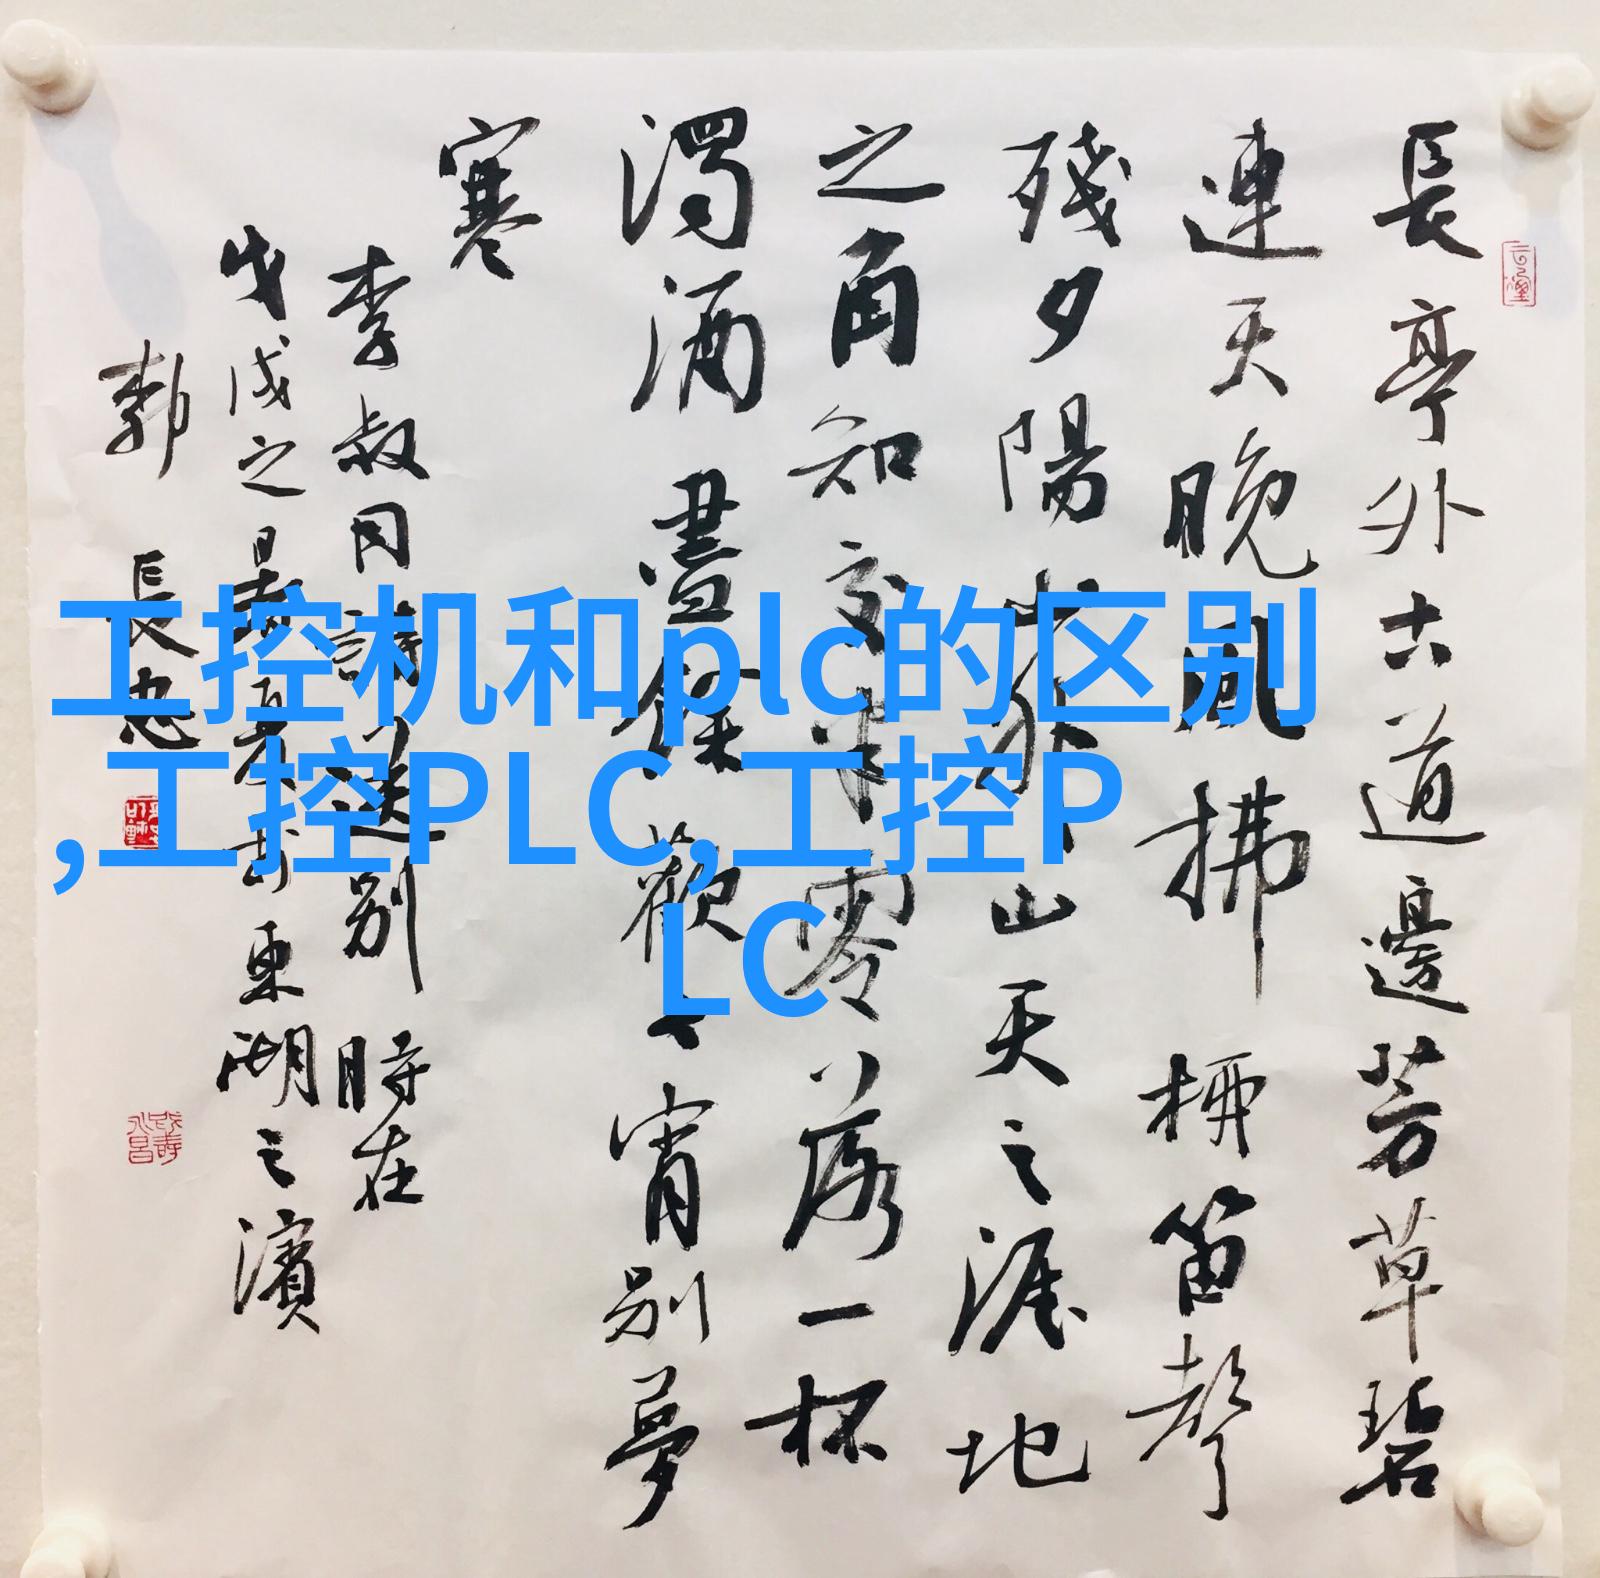 長亭外古道邊芳草碧
連天晚風拂柳笛聲
殘夕陽山外山天之涯地
之角知交半零落一杯
濁酒盡餘歡今宵別夢
寒
李叔同詩送別 時在
戊戌之夏於東湖之濱
長忠
工控机和plc的区别
,工控PLC,工控P
LC